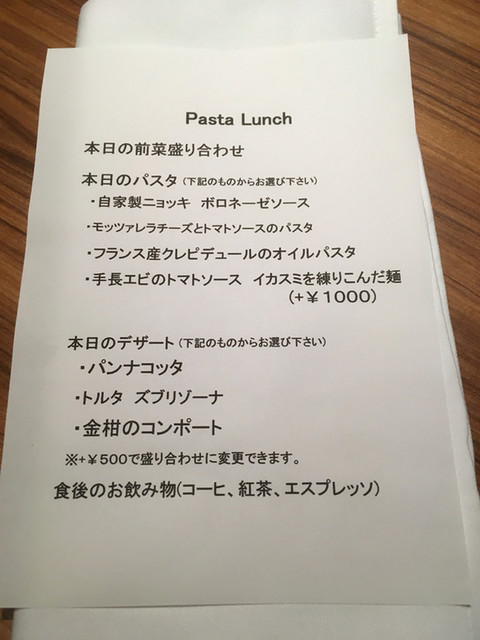 Pasta Lunch
本日の前菜盛り合わせ
本日のパスタ（下記のものからお選び下さい）
・自家製ニョッキ　ボロネーゼソース
・モッツァレラチーズとトマトソースのパスタ
・フランス産クレピデュールのオイルパスタ
・手長エビのトマトソース　イカスミを練りこんだ麺
（+￥1000）
本日のデザート（下記のものからお選び下さい）
・パンナコッタ
・トルタ　ズブリゾーナ
・金柑のコンポート
※+￥500で盛り合わせに変更できます。
食後のお飲み物(コーヒ、紅茶、エスプレッソ)